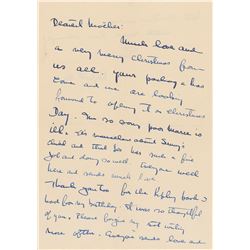 Dearest Mother:
Much love and
a very merry Christmas from
us all. Your package has
come and we are looking
forward to opening it on Christmas
Day. I'm so sorry poor Marie is
ill. It's marvelous about
and that has such a fine
job and doing so well. Everyone well
here and sends much love
Thank you too for the book
had for my birthday. It was so thoughtful
of you. Please forgive my not writing
more often. Everyone sends love and